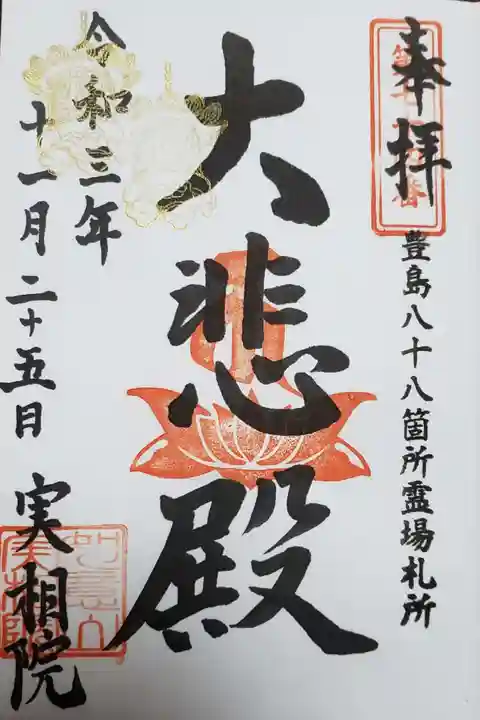 奉拝
豊島八十八箇所霊場札所
大悲殿
令和三年
十一月二十五日
実相院